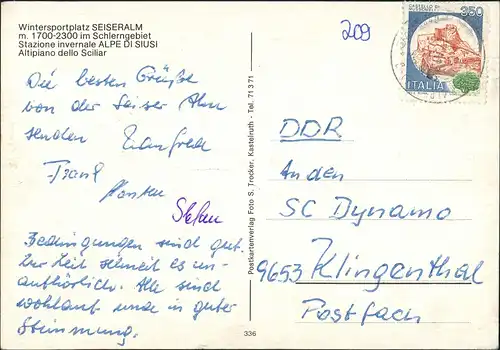 Wintersportplatz SEISERALM
m. 1700-2300 im Schlerngebiet
Stazione invernale ALPE DI SIUSI
Altipiano dello Sciliar
209
350
ITALIA
Die besten Grüße
von der Seiser Alm
senden Manfred
Frank
Stefan
Bedingungen sind gut.
Zur Zeit schneit es un-
aufhörlich. Alle sind
wohlauf und in guter
Stimmung.
Postkartenverlag Foto S. Trocker, Kastelruth - Tel. 71371
336
DDR
An den
SC Dynamo
9653 Klingenthal
Postfach